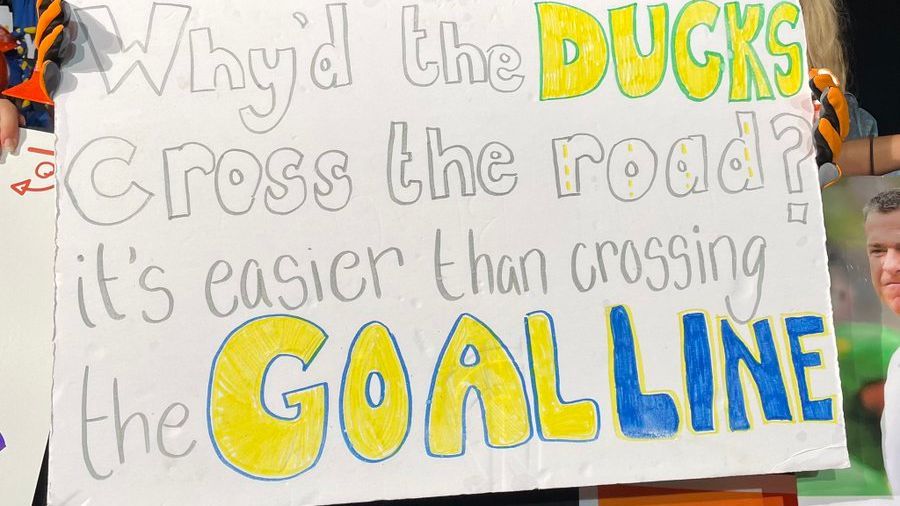 Why'd the DUCKS
Cross the road?
it's easier than crossing
the GOAL LINE